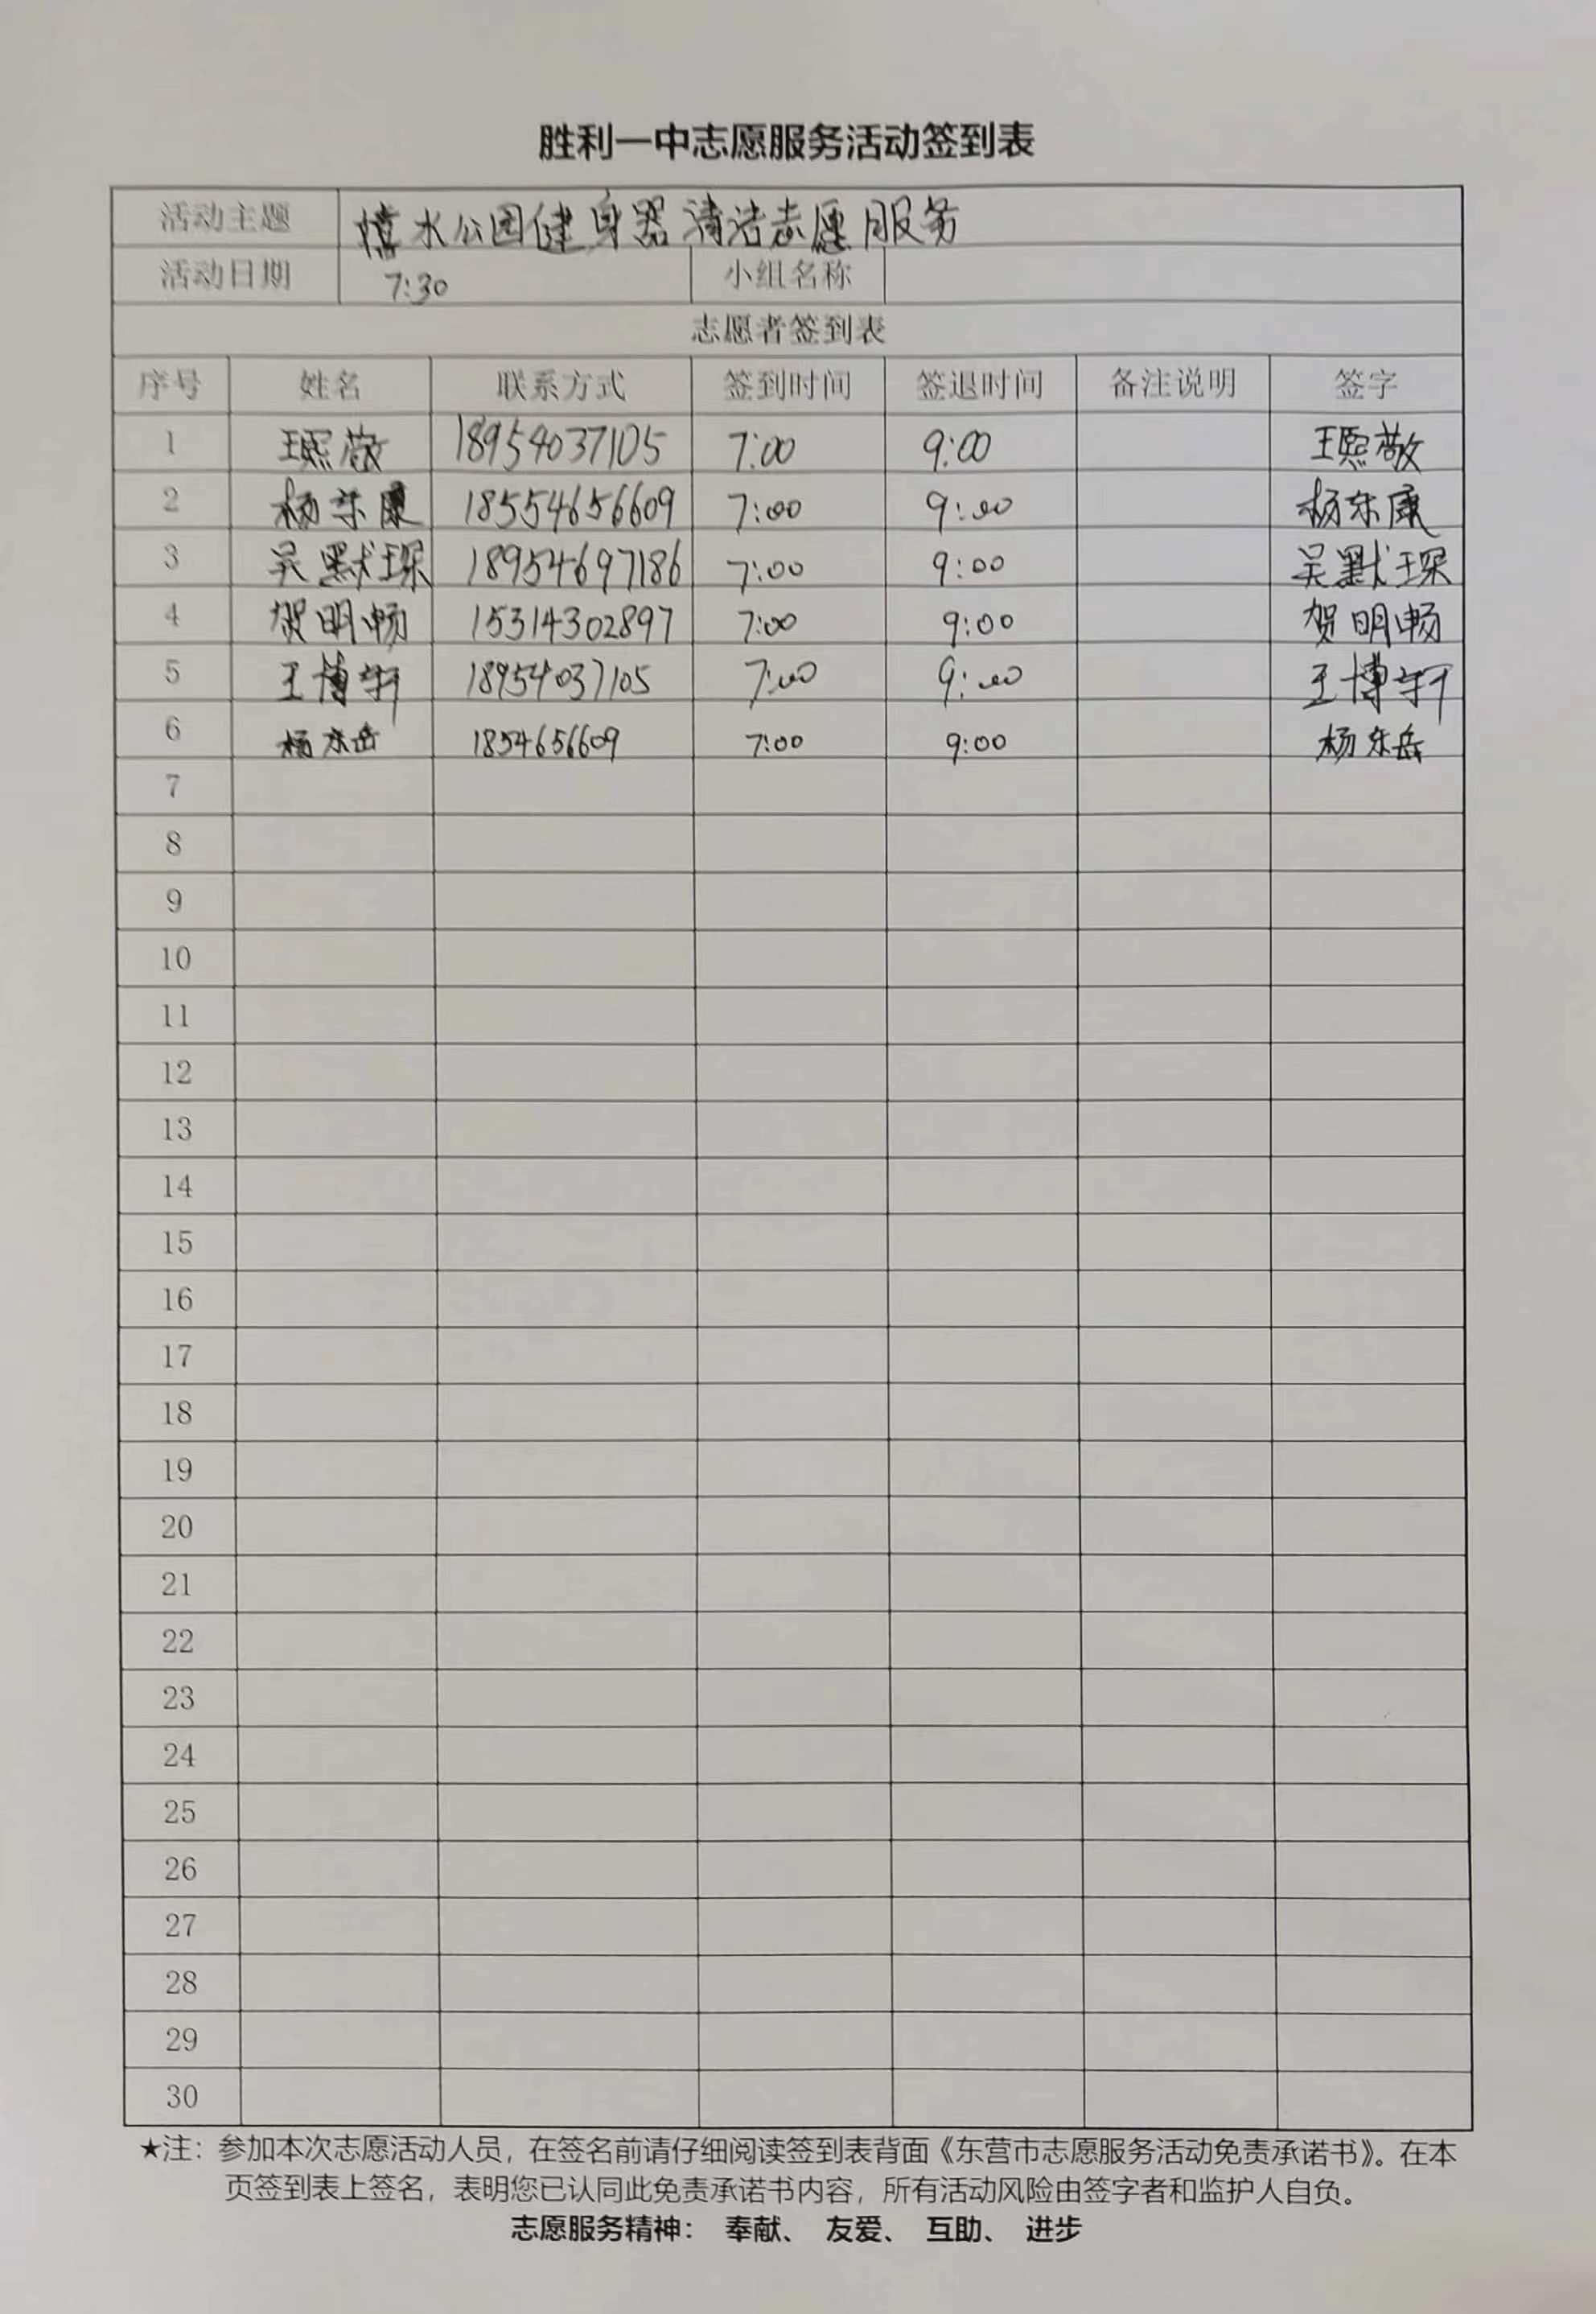 胜利一中志愿服务活动签到表
活动主题 水公园健身器清洁志愿服务
活动日期 7:30 小组名称
志愿者签到表
序号 姓名 联系方式 签到时间 签退时间 备注说明 签字
1 王熙敬 18954037105 7:00 9:00 王熙敬
2 杨东康 18554656609 7:00 9:00 杨东康
3 吴默琛 18954697186 7:00 9:00 吴默琛
4 贺明畅 15314302897 7:00 9:00 贺明畅
5 王博轩 18954037105 7:00 9:00 王博轩
6 杨东岳 1854656609 7:00 9:00 杨东岳
7
8
9
10
11
12
13
14
15
16
17
18
19
20
21
22
23
24
25
26
27
28
29
30
★注：参加本次志愿活动人员，在签名前请仔细阅读签到表背面《东营市志愿服务活动免责承诺书》。在本
页签到表上签名，表明您已认同此免责承诺书内容，所有活动风险由签字者和监护人自负。
志愿服务精神： 奉献、 友爱、 互助、 进步